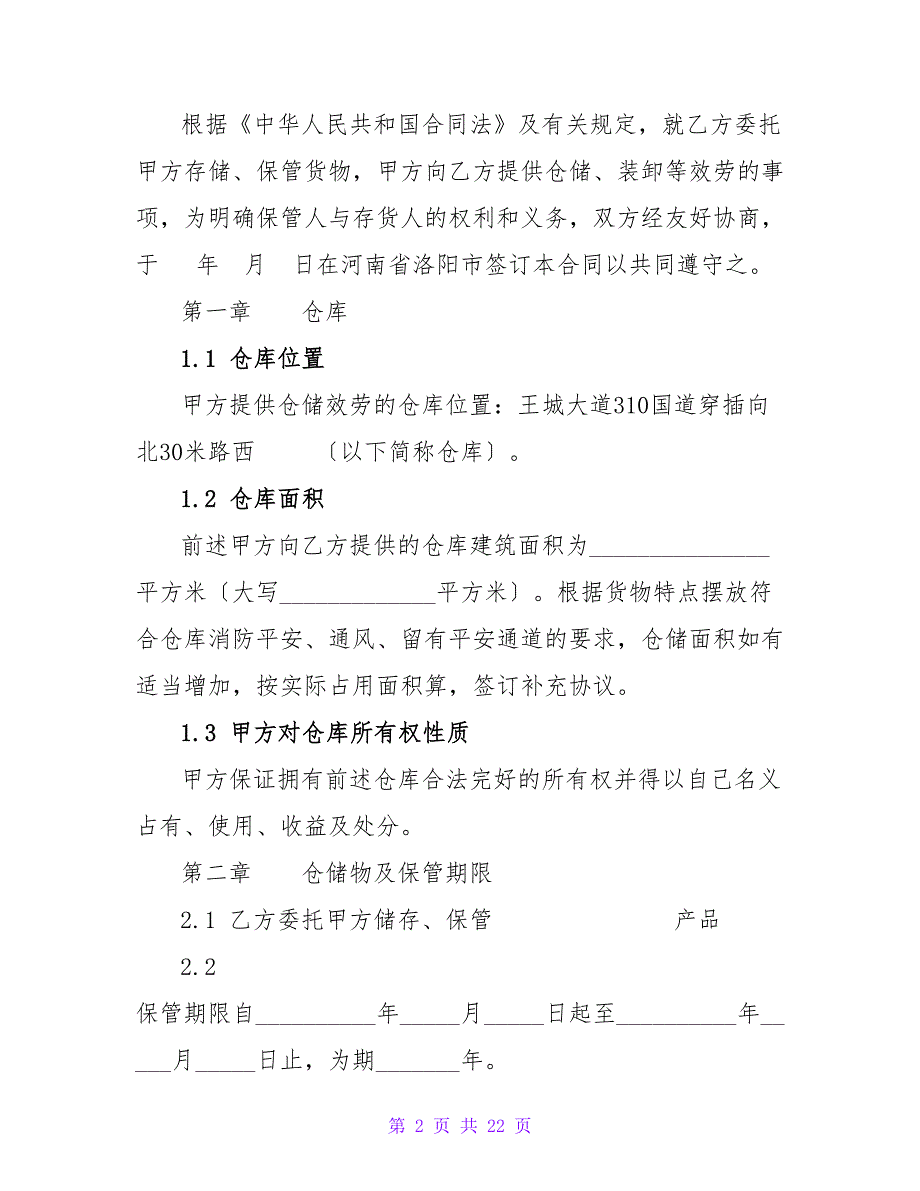 根据《中华人民共和国合同法》及有关规定，就乙方委托
甲方存储、保管货物，甲方向乙方提供仓储、装卸等效劳的事
项，为明确保管人与存货人的权利和义务，双方经友好协商，
于   年  月  日在河南省洛阳市签订本合同以共同遵守之。
第一章    仓库
1.1 仓库位置
甲方提供仓储效劳的仓库位置：王城大道310国道穿插向
北30米路西     〔以下简称仓库〕。
1.2 仓库面积
前述甲方向乙方提供的仓库建筑面积为_______________
平方米〔大写_____________平方米〕。根据货物特点摆放符
合仓库消防平安、通风、留有平安通道的要求，仓储面积如有
适当增加，按实际占用面积算，签订补充协议。
1.3 甲方对仓库所有权性质
甲方保证拥有前述仓库合法完好的所有权并得以自己名义
占有、使用、收益及处分。
第二章    仓储物及保管期限
2.1 乙方委托甲方储存、保管               产品
2.2
保管期限自__________年_____月_____日起至__________年__
___月_____日止，为期_______年。
第 2 页 共 22 页